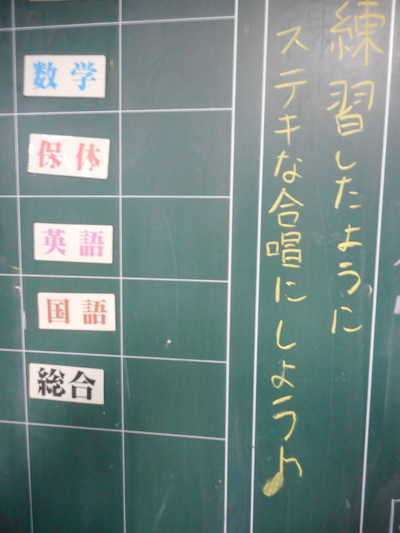 練習したように
ステキな合唱にしよう♪
数学
保体
英語
国語
総合